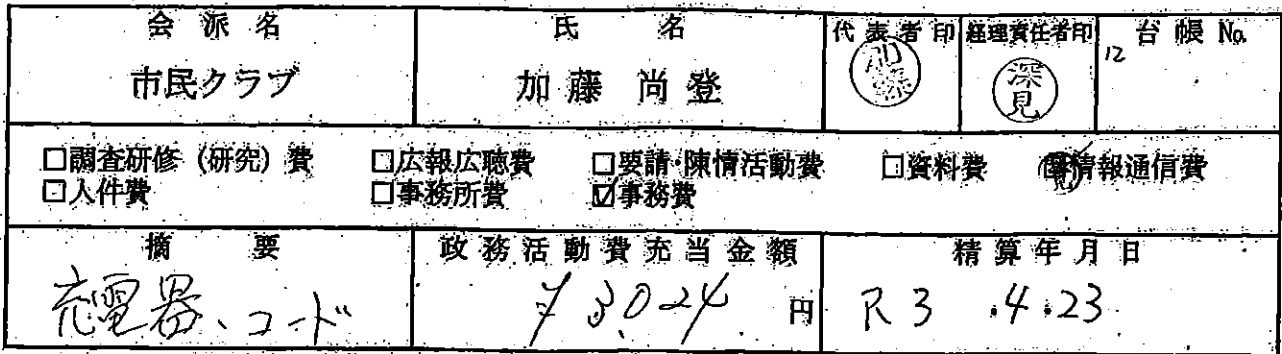 会派名 氏名 代表者印 経理責任者印 台帳No.
市民クラブ 加藤尚登 加藤 深見 12
□調査研修（研究）費 □広報広聴費 □要請・陳情活動費 □資料費 情報通信費
□人件費 □事務所費 ☑事務費
摘要 政務活動費充当金額 精算年月日
充電器、コード ¥3,024 円 R3.4.23